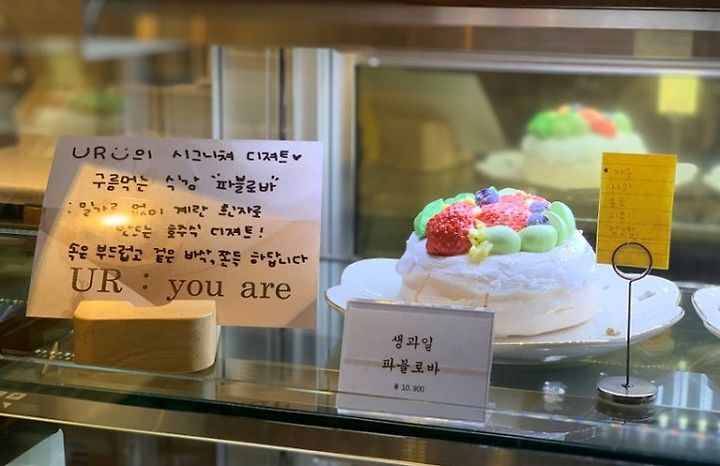 UR의 시그니쳐 디져트♥
구름먹는 식감 "파블로바"
: 밀가루 없이 계란 흰자로
만드는 호주식 디져트!
속은 부드럽고 겉은 바삭,쫀득 하답니다
UR : you are
생과일
파블로바
₩ 10,900
사과